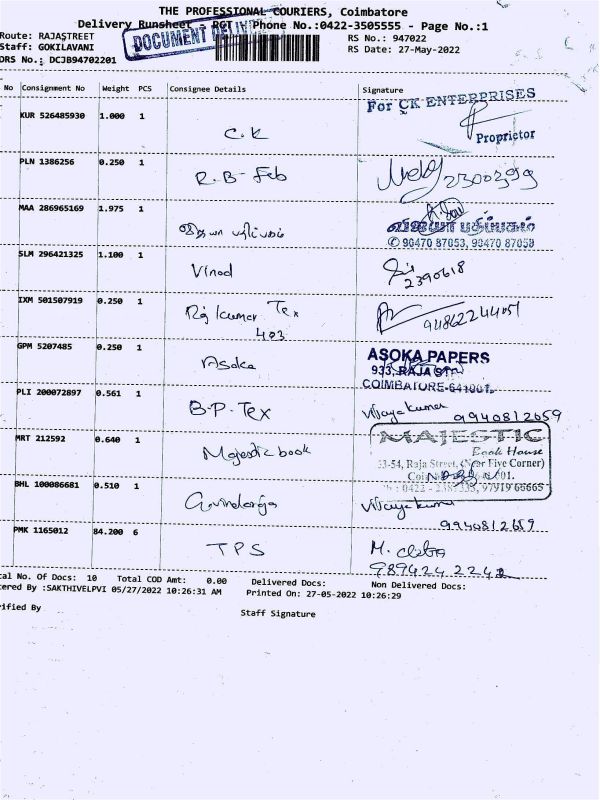 THE PROFESSIONAL COURIERS, Coimbatore
Delivery Runsheet - RGT Phone No.:0422-3505555 - Page No.:1
DOCUMENT
Route: RAJASTREET RS No.: 947022
Staff: GOKILAVANI RS Date: 27-May-2022
DRS No.: DCJB94702201
No Consignment No Weight PCS Consignee Details Signature
For CK ENTERPRISES
KUR 526485930 1.000 1
C.K
Proprietor
PLN 1386256 0.250 1
R.B-Feb
MAA 286965169 1.975 1
விஜயா பதிப்பகம்
✆ 90470 87053, 90470 87058
SLM 296421325 1.100 1
Vinod
2390618
IXM 501507919 0.250 1
Raj kumar Tex
403
GPM 5207485 0.250 1
Asoka
ASOKA PAPERS
933, RAJA ST
COIMBATORE-641001.
PLI 200072897 0.561 1
B.P. Tex
Vijaya kumar
9940812659
MRT 212592 0.640 1
Majestic book
MAJESTIC
Book House
33-54, Raja Street, (Near Five Corner)
97919 66665
BHL 100086681 0.510 1
Govindaraja
Vijaya kumar
9940812659
PMK 1165012 84.200 6
TPS
989424 2242
al No. Of Docs: 10 Total COD Amt: 0.00 Delivered Docs: Non Delivered Docs:
ered By :SAKTHIVELPVI 05/27/2022 10:26:31 AM Printed On: 27-05-2022 10:26:29
rified By
Staff Signature